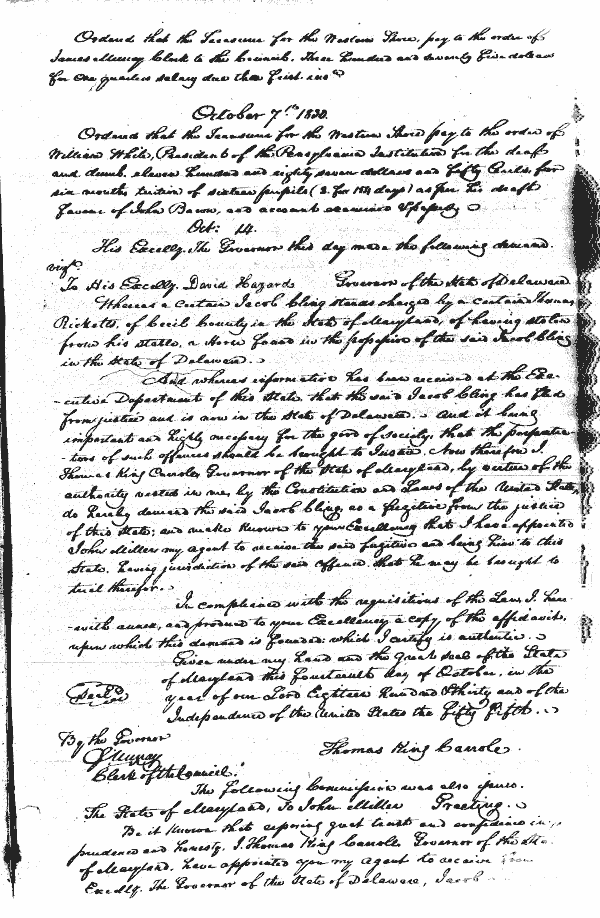 Ordered that the Treasurer for the Western Shore, pay to the order of
James Murray Clerk to the Council, Three hundred and seventy five dollars
for one quarters salary due the first inst
October 7th 1830.
Ordered that the Treasurer for the Western Shore pay to the order of
William White, President of the Pensylvania Institution for the deaf
and dumb, eleven hundred and eighty seven dollars and fifty Cents, for
six months tuition of sixteen pupils (2 for 154 days) as per his draft
favour of John Bacon, and account examined &
Oct: 14.
His Excelly. The Governor this day made the following demand.
vizt.
To His Excelly. David Hazard Governor of the State of Delaware
Whereas a certain Jacob Cling stands charged by a certain Thomas
Ricketts, of Cecil County in the State of Maryland, of having stolen
from his stable, a Horse found in the possession of the said Jacob Cling
in the State of Delaware.
And whereas information has been received at the Exe-
-cutive Department of this State that the said Jacob Cling has fled
from justice and is now in the State of Delaware. And it being
important and highly necessary for the good of society, that the perpetra-
-tors of such offences should be brought to Justice. Now therefore I.
Thomas King Carroll Governor of the State of Maryland, by virtue of the
authority vested in me, by the Constitution and Laws of the United States,
do hereby demand the said Jacob Cling, as a fugitive from the justice
of this State; and make known to your Excellency that I have appointed
John Miller my agent to receive the said fugitive and bring him to this
State, having jurisdiction of the said offence, that he may be brought to
trial therefor.
In compliance with the requisitions of the Law, I. here-
-with annex, and produce to your Excellency a copy of the affidavit,
upon which this demand is founded, which I certify is authentic.
Given under my hand and the great seal of the State
of Maryland this fourteenth day of October, in the
year of our Lord Eighteen Hundred & thirty and of the
Independence of the United States the fifty fifth.
By the Governor
Thomas King Carroll.
J Murray
Clerk of the Council.
The following Commission was also issued.
The State of Maryland, To John Miller Greeting.
Be it known that reposing great trust and confidence in
prudence and honesty, I. Thomas King Carroll Governor of the
of Maryland, have appointed you my agent to receive from
Excelly. The Governor of the State of Delaware, Jacob